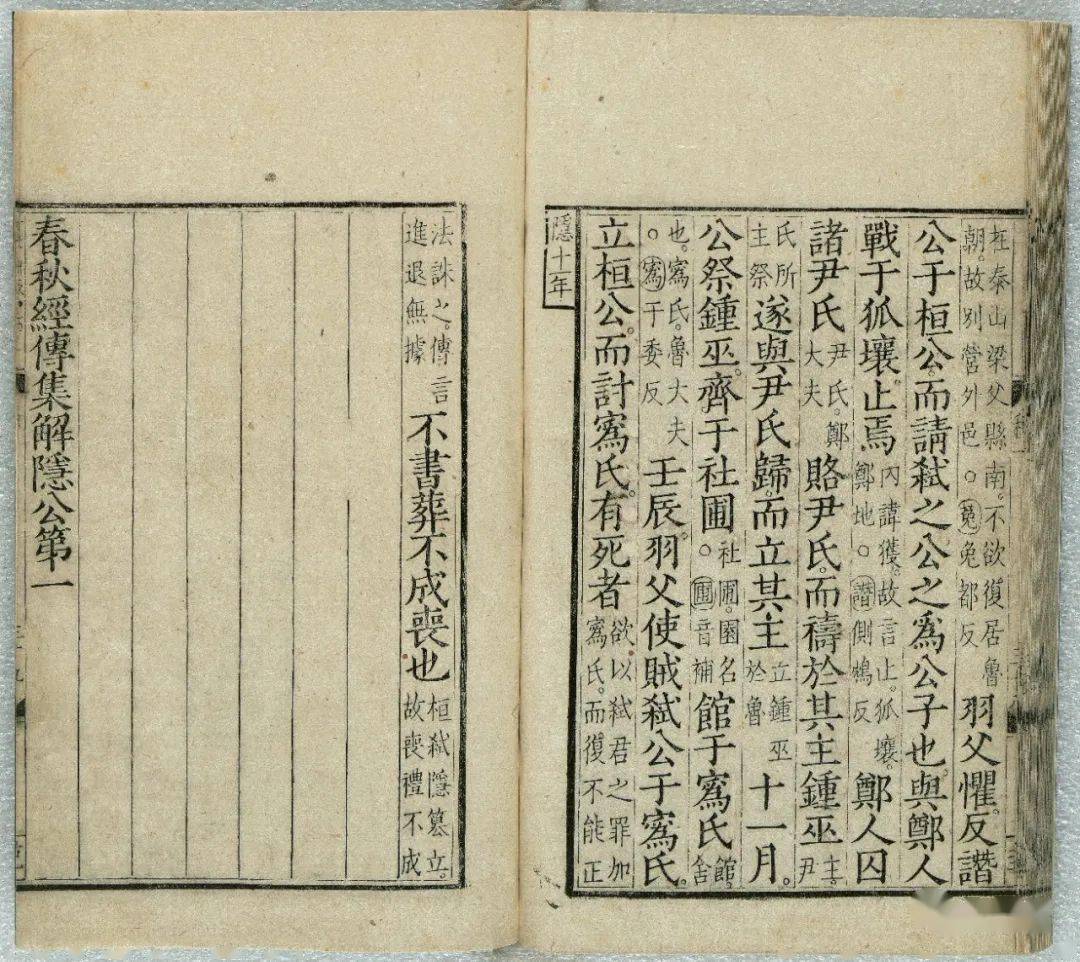 在泰山梁父縣南。不欲復居魯朝。故別營外邑。○菟兔都反羽父懼。反譖
公于桓公。而請弑之公之爲公子也。與鄭人
戰于狐壤。止焉內諱獲。故言止。狐壤。鄭地○譖側鴆反鄭人囚
諸尹氏尹氏。鄭大夫賂尹氏。而禱於其主鍾巫主。尹
氏所主祭遂與尹氏歸。而立其主立鍾巫於魯十一月。
公祭鍾巫。齊于社圃社圃。園名○圃音補館于寪氏館。舍
也。寪氏。魯大夫○寪于委反壬辰。羽父使賊弑公于寪氏。
立桓公。而討寪氏。有死者欲以弑君之罪加寪氏。而復不能正
隱十一年
法誅之。傳言進退無據不書葬。不成喪也桓弑隱篡立。故喪禮不成
春秋經傳集解隱公第一